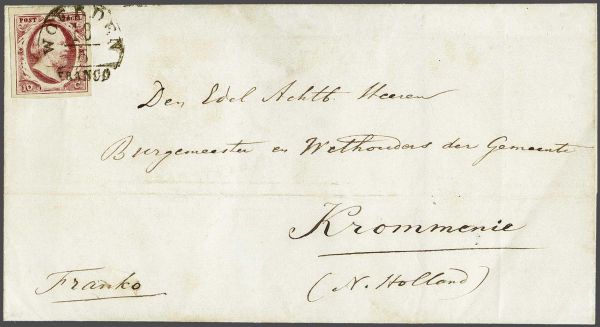 POST ZEGEL
10 C
WOERDEN
FRANCO
Den Edel Achtb. Heeren
Burgemeester en Wethouders der Gemeente
Krommenie
(N. Holland)
Franko